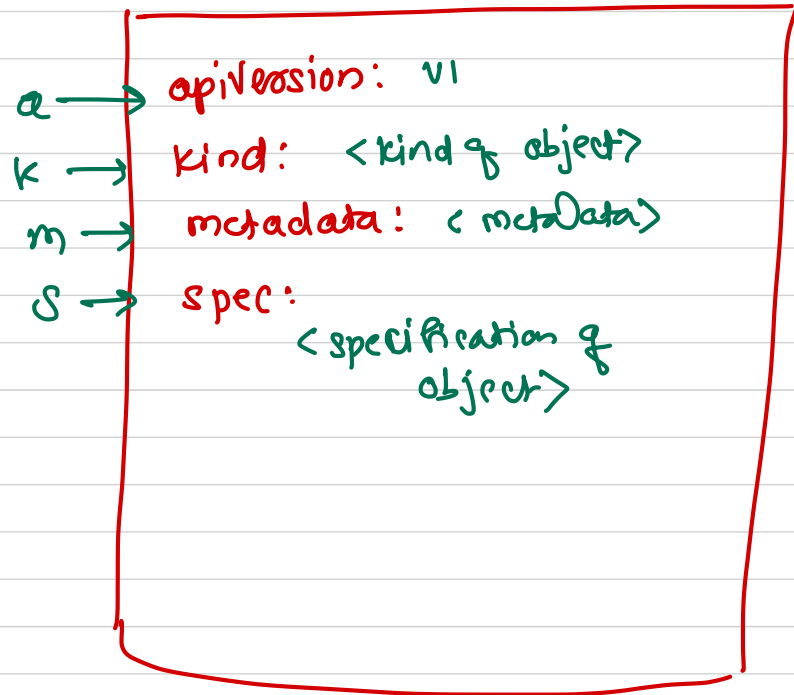 a → apiVersion: v1
k → kind: <kind of object>
m → metadata: <metaData>
S → spec:
<specification of
object>